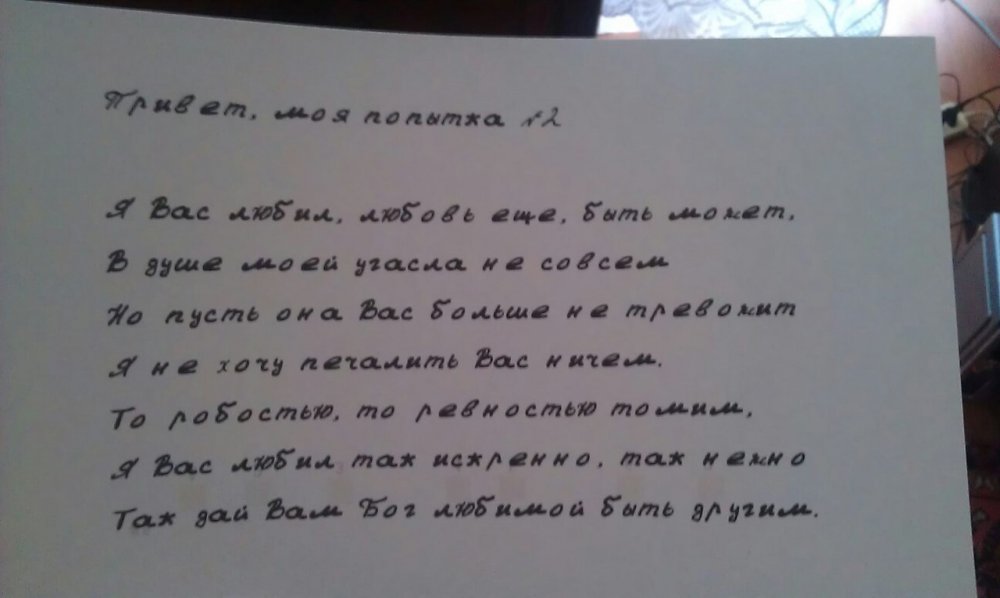 Привет, моя попытка №2
Я Вас любил, любовь еще, быть может,
В душе моей угасла не совсем
Но пусть она Вас больше не тревожит
Я не хочу печалить Вас ничем.
То робостью, то ревностью томим,
Я Вас любил так искренно, так нежно
Так дай Вам Бог любимой быть другим.